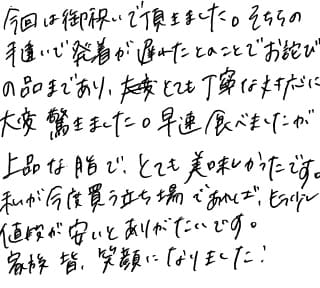 今回は御祝いで頂きました。そちらの
手違いで発着が遅れたとのことでお詫び
の品まであり、大変とても丁寧な対応に
大変驚きました。早速食べましたが
上品な脂で、とても美味しかったです。
私が今度買う立ち場であれば、もう少し
値段が安いとありがたいです。
家族皆、笑顔になりました!